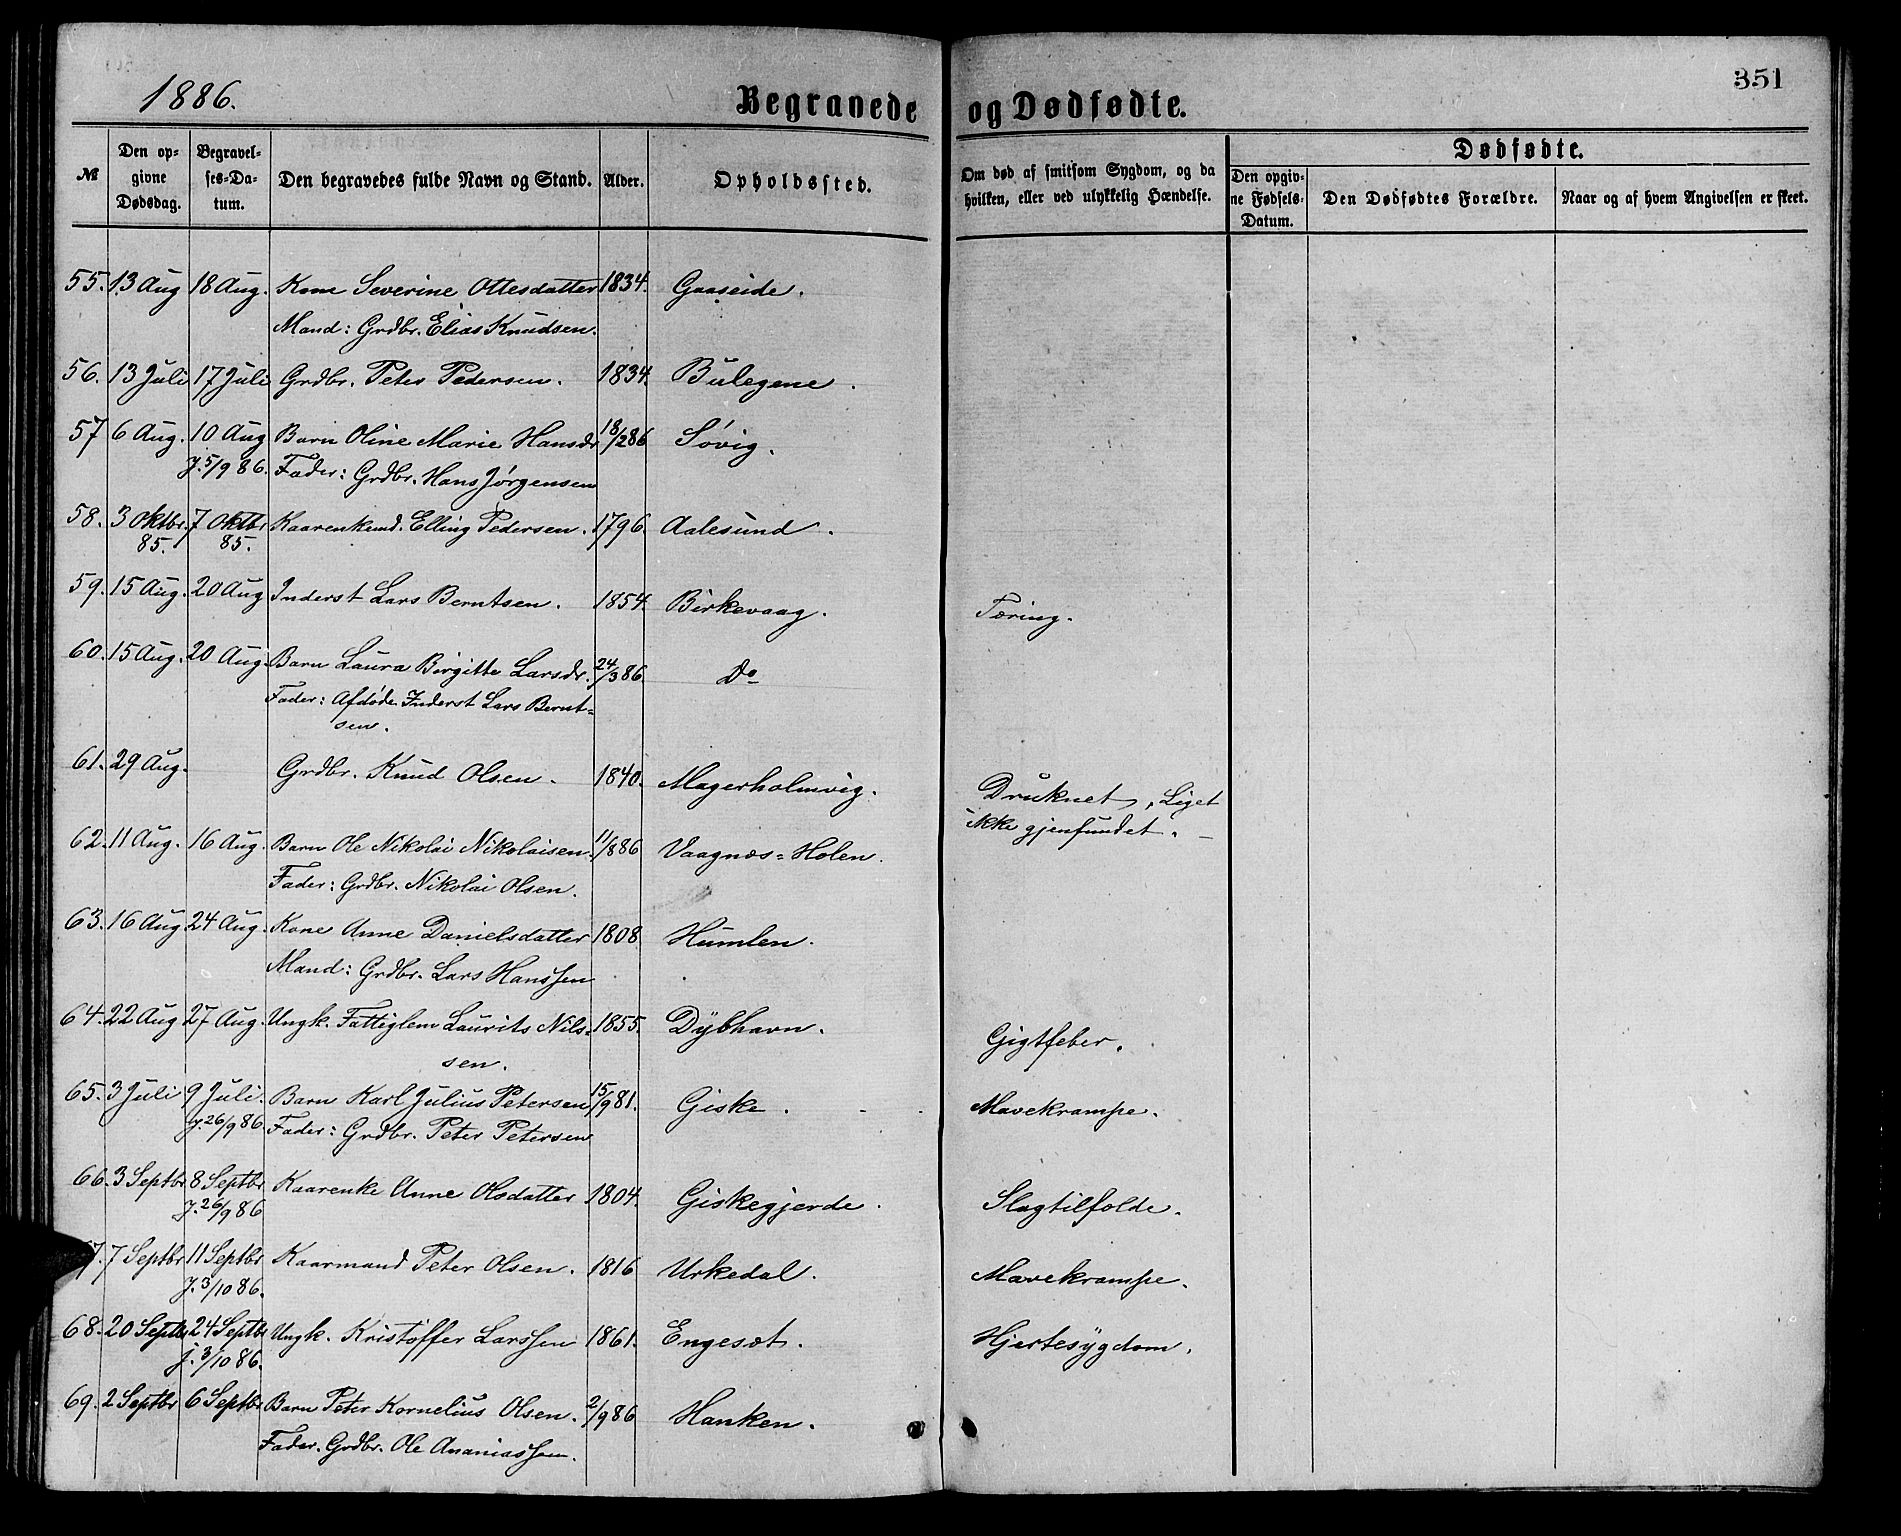 1886.
Begravede og Dødfødte.
351
№
Den opgivne Dødsdag.
Begravelses-Datum.
Den begravedes fulde Navn og Stand.
Alder.
Opholdssted.
Om død af smitsom Sygdom, og da hvilken, eller ved ulykkelig Hændelse.
Dødfødte.
Den opgivne Fødsels-Datum.
Den Dødfødtes Forældre.
Naar og af hvem Angivelsen er skeet.
55. 13 Aug 18 Aug. Kone Severine Ottesdatter 1834. Gaaseide.
Mand: Grdbr. Elias Knudsen.
56. 13 Juli 17 Juli Grdbr. Peter Pedersen. 1834. Bulegene.
57 6 Aug. 10 Aug Barn Oline Marie Hansdr 18/2 86 Søvig.
J. 5/9 86. Fader: Grdbr. Hans Jørgensen
58. 3 Oktbr. 7 Oktbr Kaarenkemd. Elling Pedersen. 1796. Aalesund.
85. 85.
59. 15 Aug. 20 Aug Inderst Lars Berntsen. 1854. Birkevaag. Tæring.
60. 15 Aug. 20 Aug. Barn Laura Birgitte Larsdr. 24/3 86. Do
Fader: Afdøde Inderst Lars Bernt=
sen.
61. 29 Aug. Grdbr. Knud Olsen. 1840. Magerholmvig. Druknet, Liget
ikke gjenfundet.
62. 11 Aug. 16 Aug. Barn Ole Nikolai Nikolaisen. 11/8 86 Vaagnæs=Holen.
Fader: Grdbr. Nikolai Olsen.
63. 16 Aug 24 Aug. Kone Anne Danielsdatter 1808. Humlen.
Mand: Grdbr. Lars Hanssen
64. 22 Aug 27 Aug. Ungk. Fattiglem Laurits Nils= 1855. Dybhavn. Gigtfeber.
sen.
65. 3 Juli 9 Juli. Barn Karl Julius Petersen 15/9 81. Giske. Mavekrampe.
J. 26/9 86. Fader: Grdbr. Peter Petersen
66. 3 Septbr 8 Septbr Kaarenke Anne Olsdatter 1804. Giskegjerde. Slagtilfælde.
J. 26/9 86
7. 7 Septbr 11 Septbr Kaarmand Peter Olsen. 1816 Urkedal. Mavekrampe.
J. 3/10 86.
68. 20 Septbr 24 Septbr Ungk. Kristoffer Larssen 1861. Engesæt. Hjertesygdom.
j. 3/10 86.
69. 2 Septbr 6 Septbr Barn Peter Kornelius Olsen. 2/9 86 Hanken.
Fader. Grdbr. Ole Ananiassen.